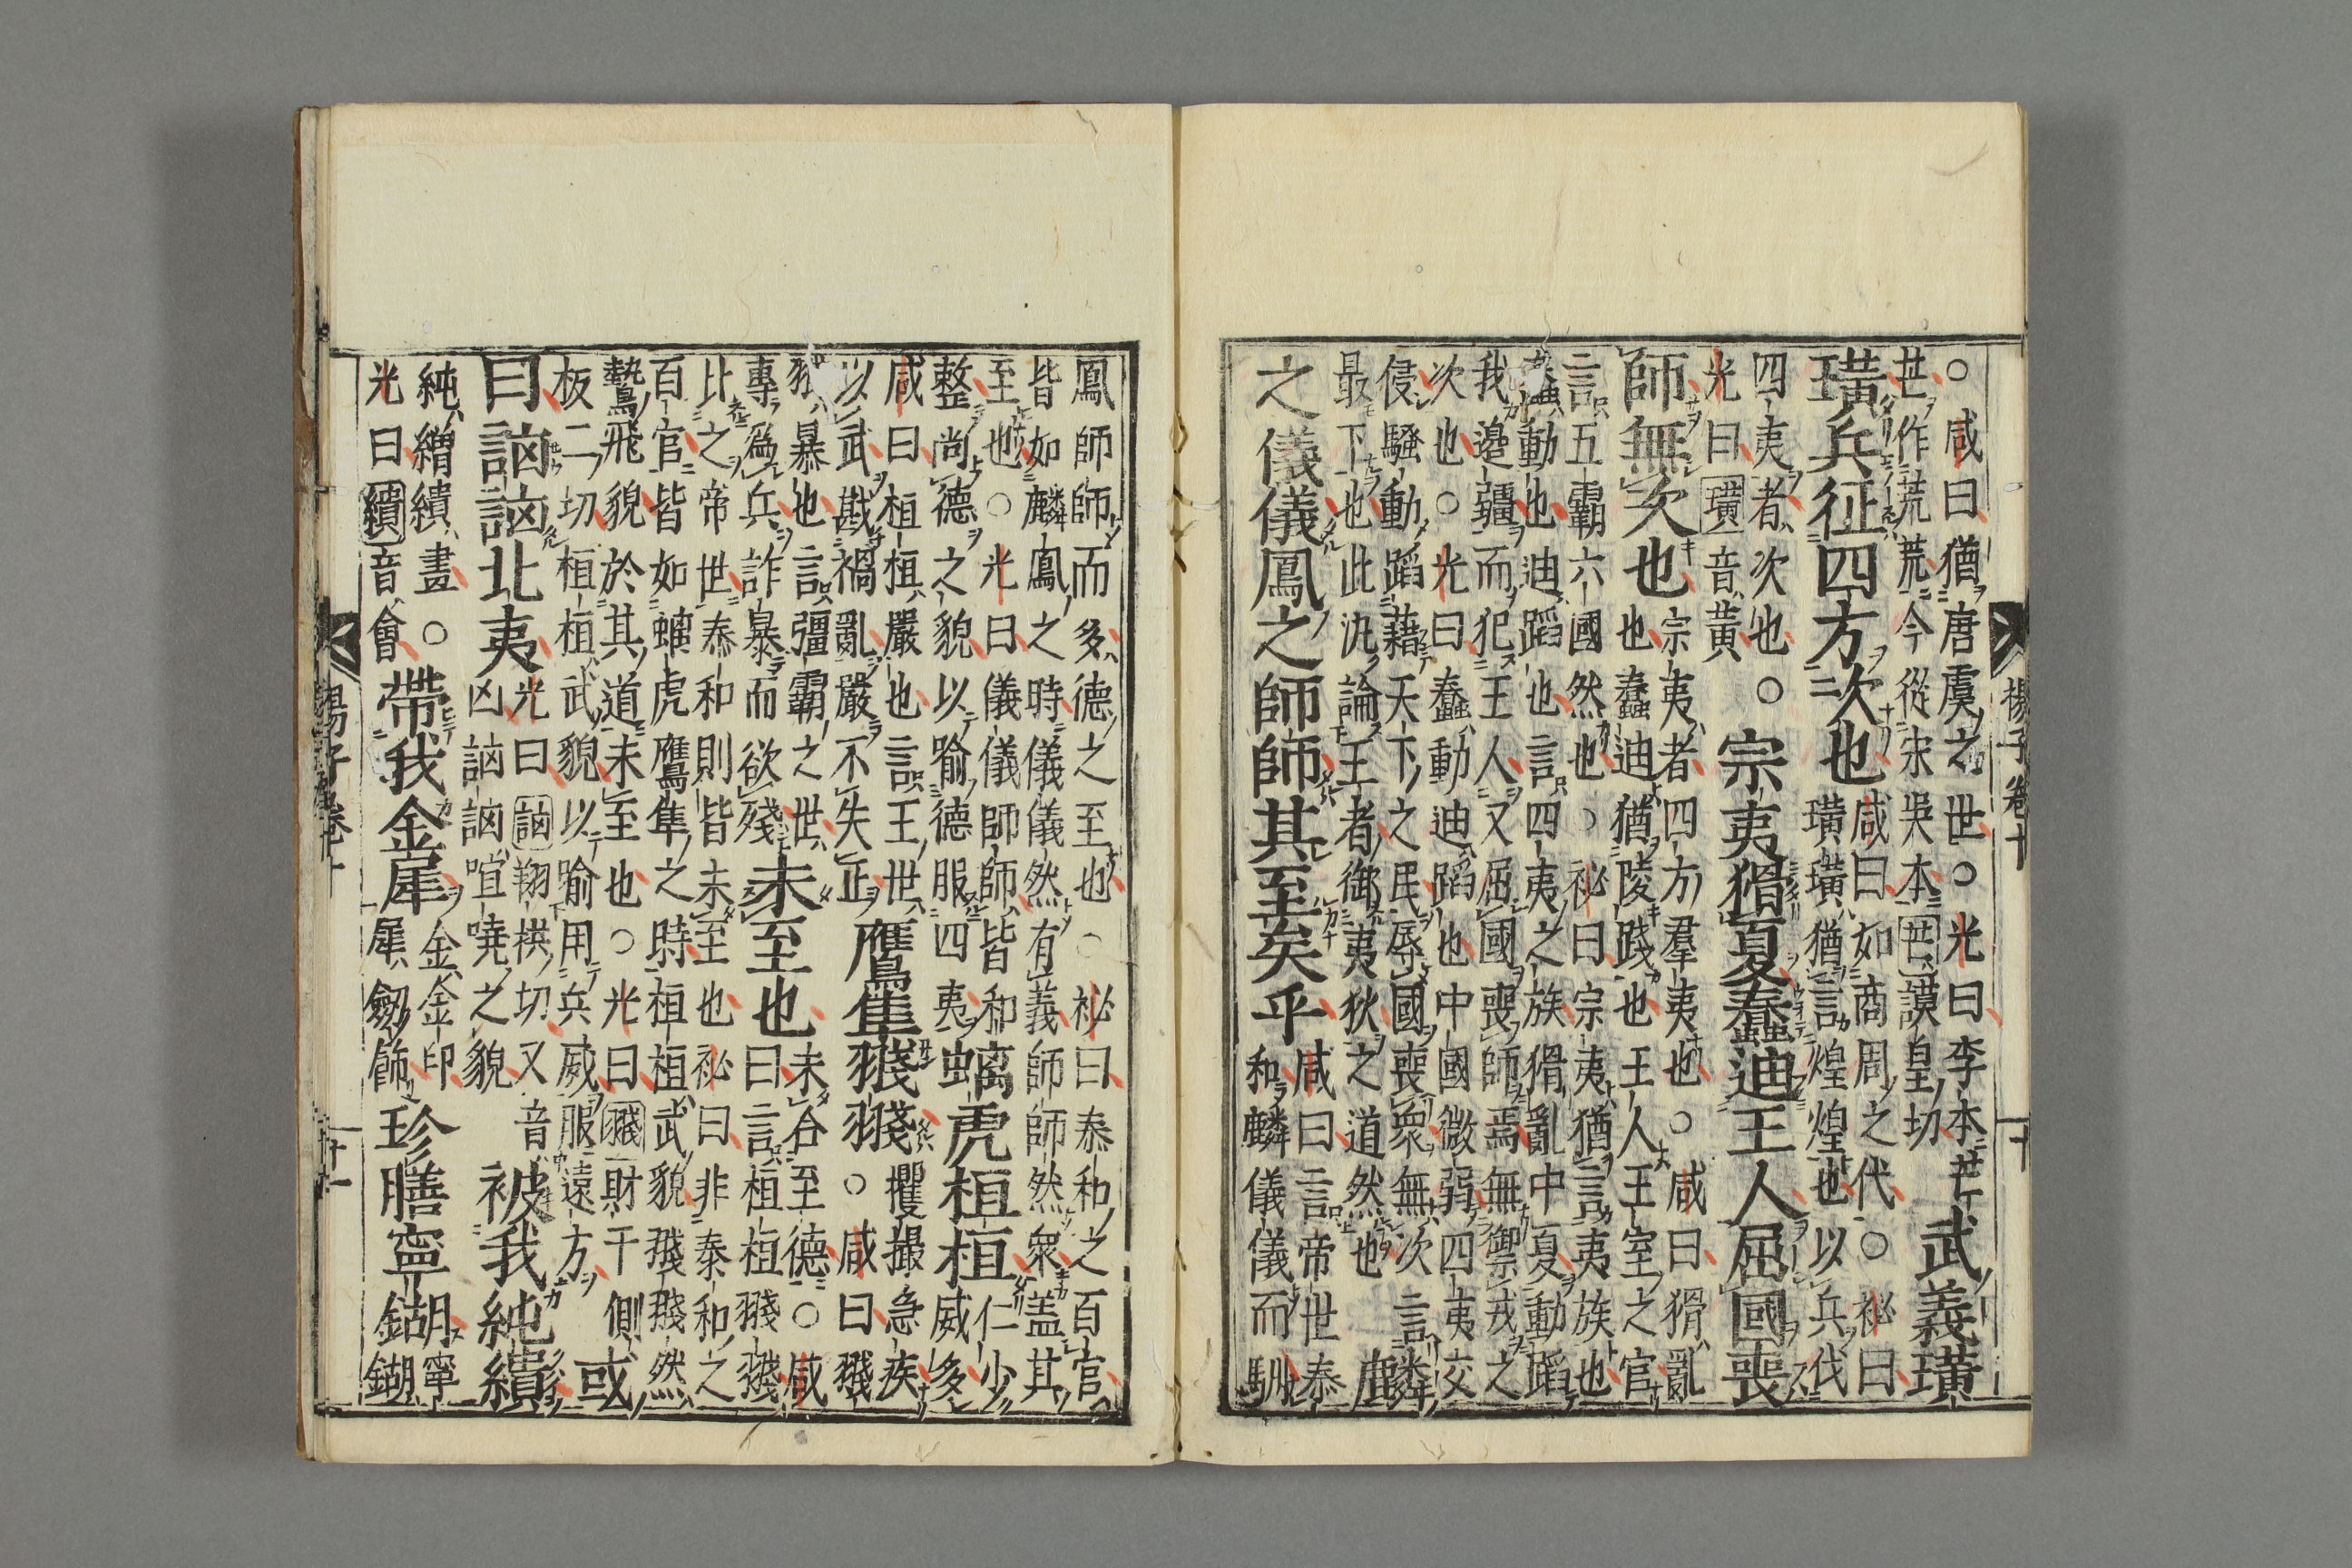 ○咸曰猶唐虞之世○光曰李本芒作
世作荒荒今從宋吳本芒謨皇切
武義璜
璜兵征四方次也
咸曰如商周之代○祕曰
璜璜猶言煌煌也以兵伐
四夷者次也○
光曰璜音黃
宗夷猾夏蠢迪王人屈國喪
師無次也
宗夷者四方羣夷也○咸曰猾亂
也蠢迪猶陵踐也王人王室之官
言五霸六國然也○祕曰宗夷猶言夷族也
蠢動也迪蹈也言四夷之族猾亂中夏動蹈
我邊疆而犯王人又屈國喪師焉無禦戎之
次也○光曰蠢動迪蹈也中國微弱四夷交
侵騷動蹈藉天下之民辱國喪衆無次言
最下也此汎論王者御夷狄之道然也
麟
之儀儀鳳之師師其至矣乎
咸曰言帝世泰
和麟儀儀而馴
鳳師師而多德之至也○祕曰泰和之百官
皆如麟鳳之時儀儀然有義師師然衆盖其
至也○光曰儀儀師師皆和
整尚德之貌以喻德服四夷
螭虎桓桓
仁少
威多
咸曰桓桓嚴也言王世
以武戡禍亂嚴不失正
鷹隼䎒䎒
攫撮急疾
○咸曰䎒
䎒暴也言彊霸之世
專爲兵詐暴而欲殘
未至也
未合至德○咸
曰言桓桓䎒䎒
比之帝世泰和則皆未至也祕曰非泰和之
百官皆如螭虎鷹隼之時桓桓武貌䎒䎒然
鷙飛貌於其道未至也○光曰䎒財干側
板二切桓桓武貌以喻用兵威服遠方
或
曰訩訩北夷
光曰訩翔拱切又音
凶訩訩喧嘵之貌
被我純繢
純繒繢畫○
光曰繢音會
帶我金犀
金金印
犀劒飾
珍膳寧餬
胡寧
餬餬
揚子卷十
十
揚子卷十
十一